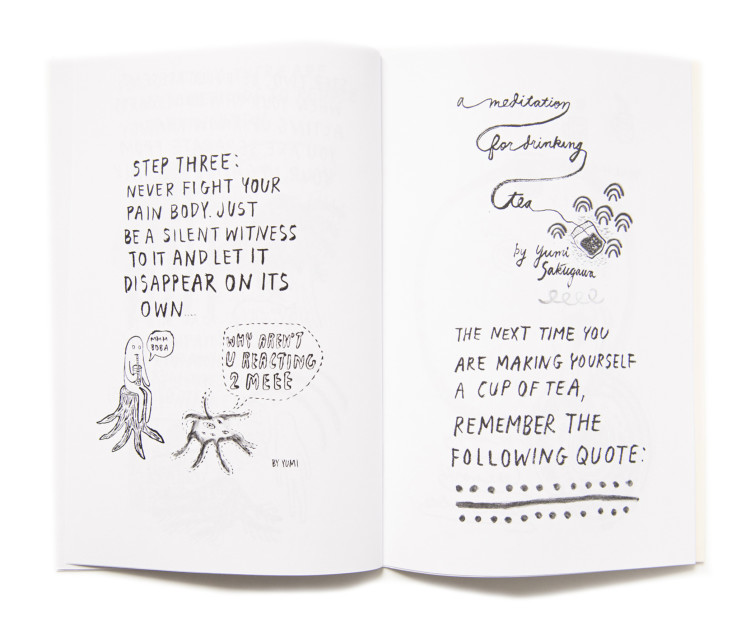 STEP THREE:
NEVER FIGHT YOUR
PAIN BODY. JUST
BE A SILENT WITNESS
TO IT AND LET IT
DISAPPEAR ON ITS
OWN....
MMM
BOBA
WHY AREN'T
U REACTING
2 MEEE
BY YUMI
a meditation
for drinking
tea
by Yumi
Sakugawa
THE NEXT TIME YOU
ARE MAKING YOURSELF
A CUP OF TEA,
REMEMBER THE
FOLLOWING QUOTE: